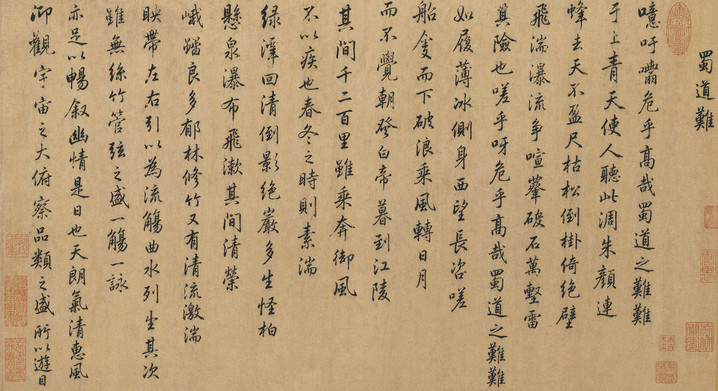 蜀道難
噫吁嚱危乎高哉蜀道之難難
于上青天使人聽此凋朱顏連
峰去天不盈尺枯松倒掛倚絕壁
飛湍瀑流爭喧輩破石萬壑雷
其險也嗟乎呀危乎高哉蜀道之難難
如履薄冰側身西望長咨嗟
船而下破浪乘風轉日月
而不覺朝發白帝暮到江陵
其間千二百里雖乘奔御風
不以疾也春冬之時則素湍
綠潭回清倒影絕巘多生怪柏
懸泉瀑布飛漱其間清榮
峨良多郁林修竹又有清流激湍
映帶左右引以為流觴曲水列坐其次
雖無絲竹管弦之盛一觴一詠
亦足以暢敘幽情是日也天朗氣清惠風
仰觀宇宙之大俯察品類之盛所以遊目